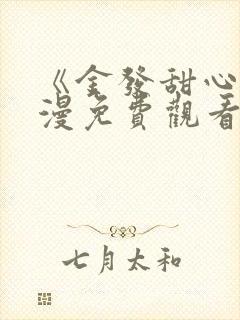 《金發甜心
漫免費觀看
七月太和